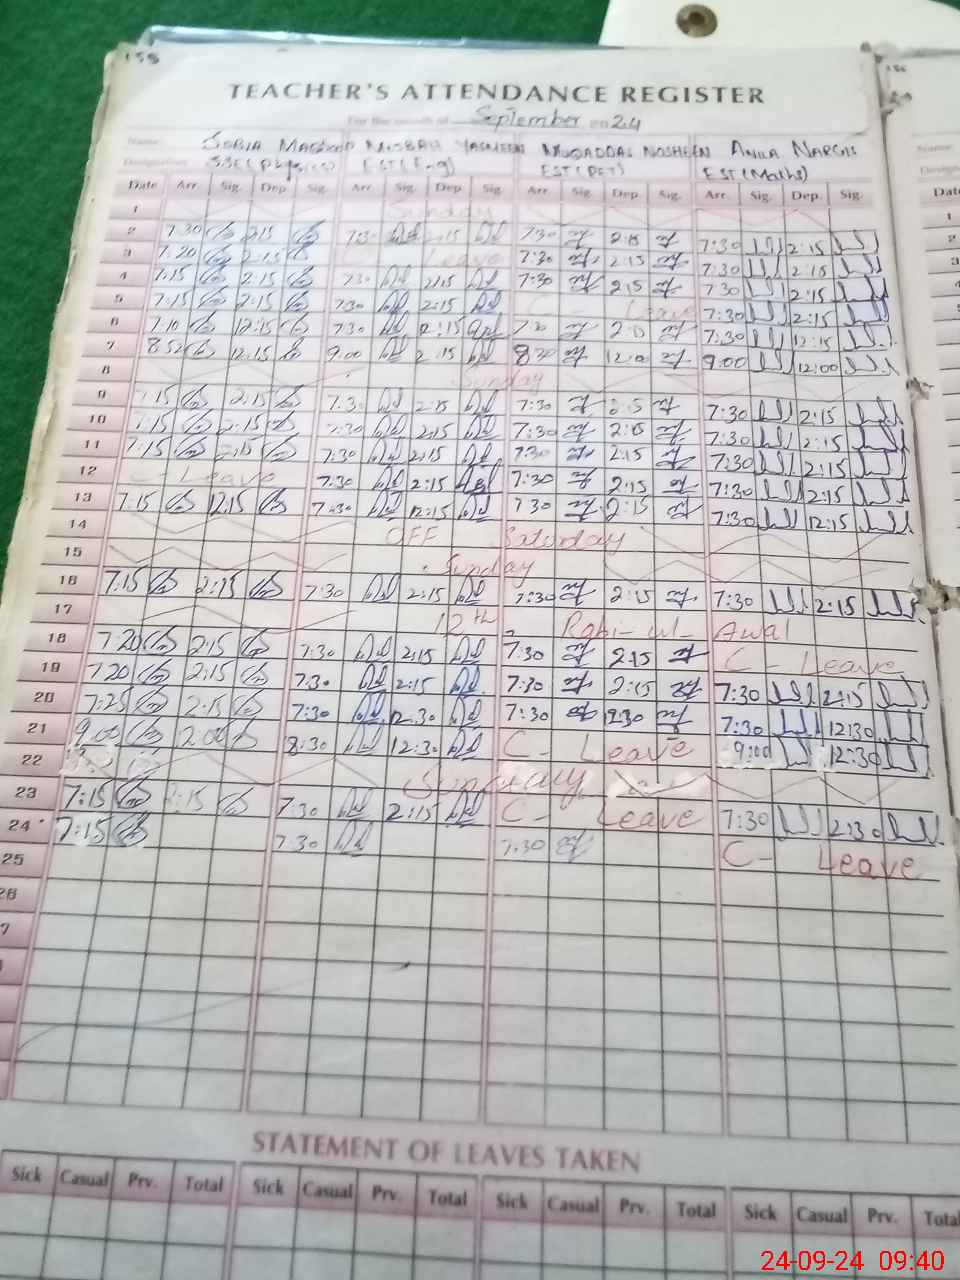 155
TEACHER'S ATTENDANCE REGISTER
For the month of September 2024
Name: SOBIA MISBAH YASMEEN MUQADDAS NOSHEEN ANILA NARGIS
Designation SSE(Physics) EST(Eng) EST(PET) EST(Maths)
Date Arr. Sig. Dep. Sig. Arr. Sig. Dep. Sig. Arr. Sig. Dep. Sig. Arr. Sig. Dep. Sig.
1 Sunday
2 7:30 2:15 7:30 2:15 7:30 2:15 7:30 2:15
3 7:20 2:15 Leave 7:30 2:15 7:30 2:15
4 7:15 2:15 7:30 2:15 7:30 2:15 7:30 2:15
5 7:15 2:15 7:30 2:15 C- Leave 7:30 2:15
6 7:10 12:15 7:30 12:15 7:30 7:30 12:15
7 8:52 12:15 9:00 2:15 8:30 9:00 12:00
8 Sunday
9 7:15 2:15 7:30 2:15 7:30 2:15 7:30 2:15
10 7:15 2:15 7:30 2:15 7:30 2:15 7:30 2:15
11 7:15 2:15 7:30 2:15 7:30 2:15 7:30 2:15
12 C- Leave 7:30 2:15 7:30 2:15 7:30 2:15
13 7:15 12:15 7:30 12:15 7:30 2:15 7:30 12:15
14 OFF Saturday
15 Sunday
16 7:15 2:15 7:30 2:15 7:30 2:15 7:30 2:15
17 12th Rabi-ul-Awal
18 7:20 2:15 7:30 2:15 7:30 2:15 C- Leave
19 7:20 2:15 7:30 2:15 7:30 2:15 7:30 2:15
20 7:25 2:15 7:30 12:30 7:30 12:30 7:30 12:30
21 9:00 2:00 8:30 12:30 C- Leave 9:00 12:30
22 Sunday
23 7:15 2:15 7:30 2:15 C- Leave 7:30 2:30
24 7:15 7:30 7:30 C- Leave
25
26
STATEMENT OF LEAVES TAKEN
Sick Casual Prv. Total Sick Casual Prv. Total Sick Casual Prv. Total Sick Casual Prv. Total
24-09-24 09:40